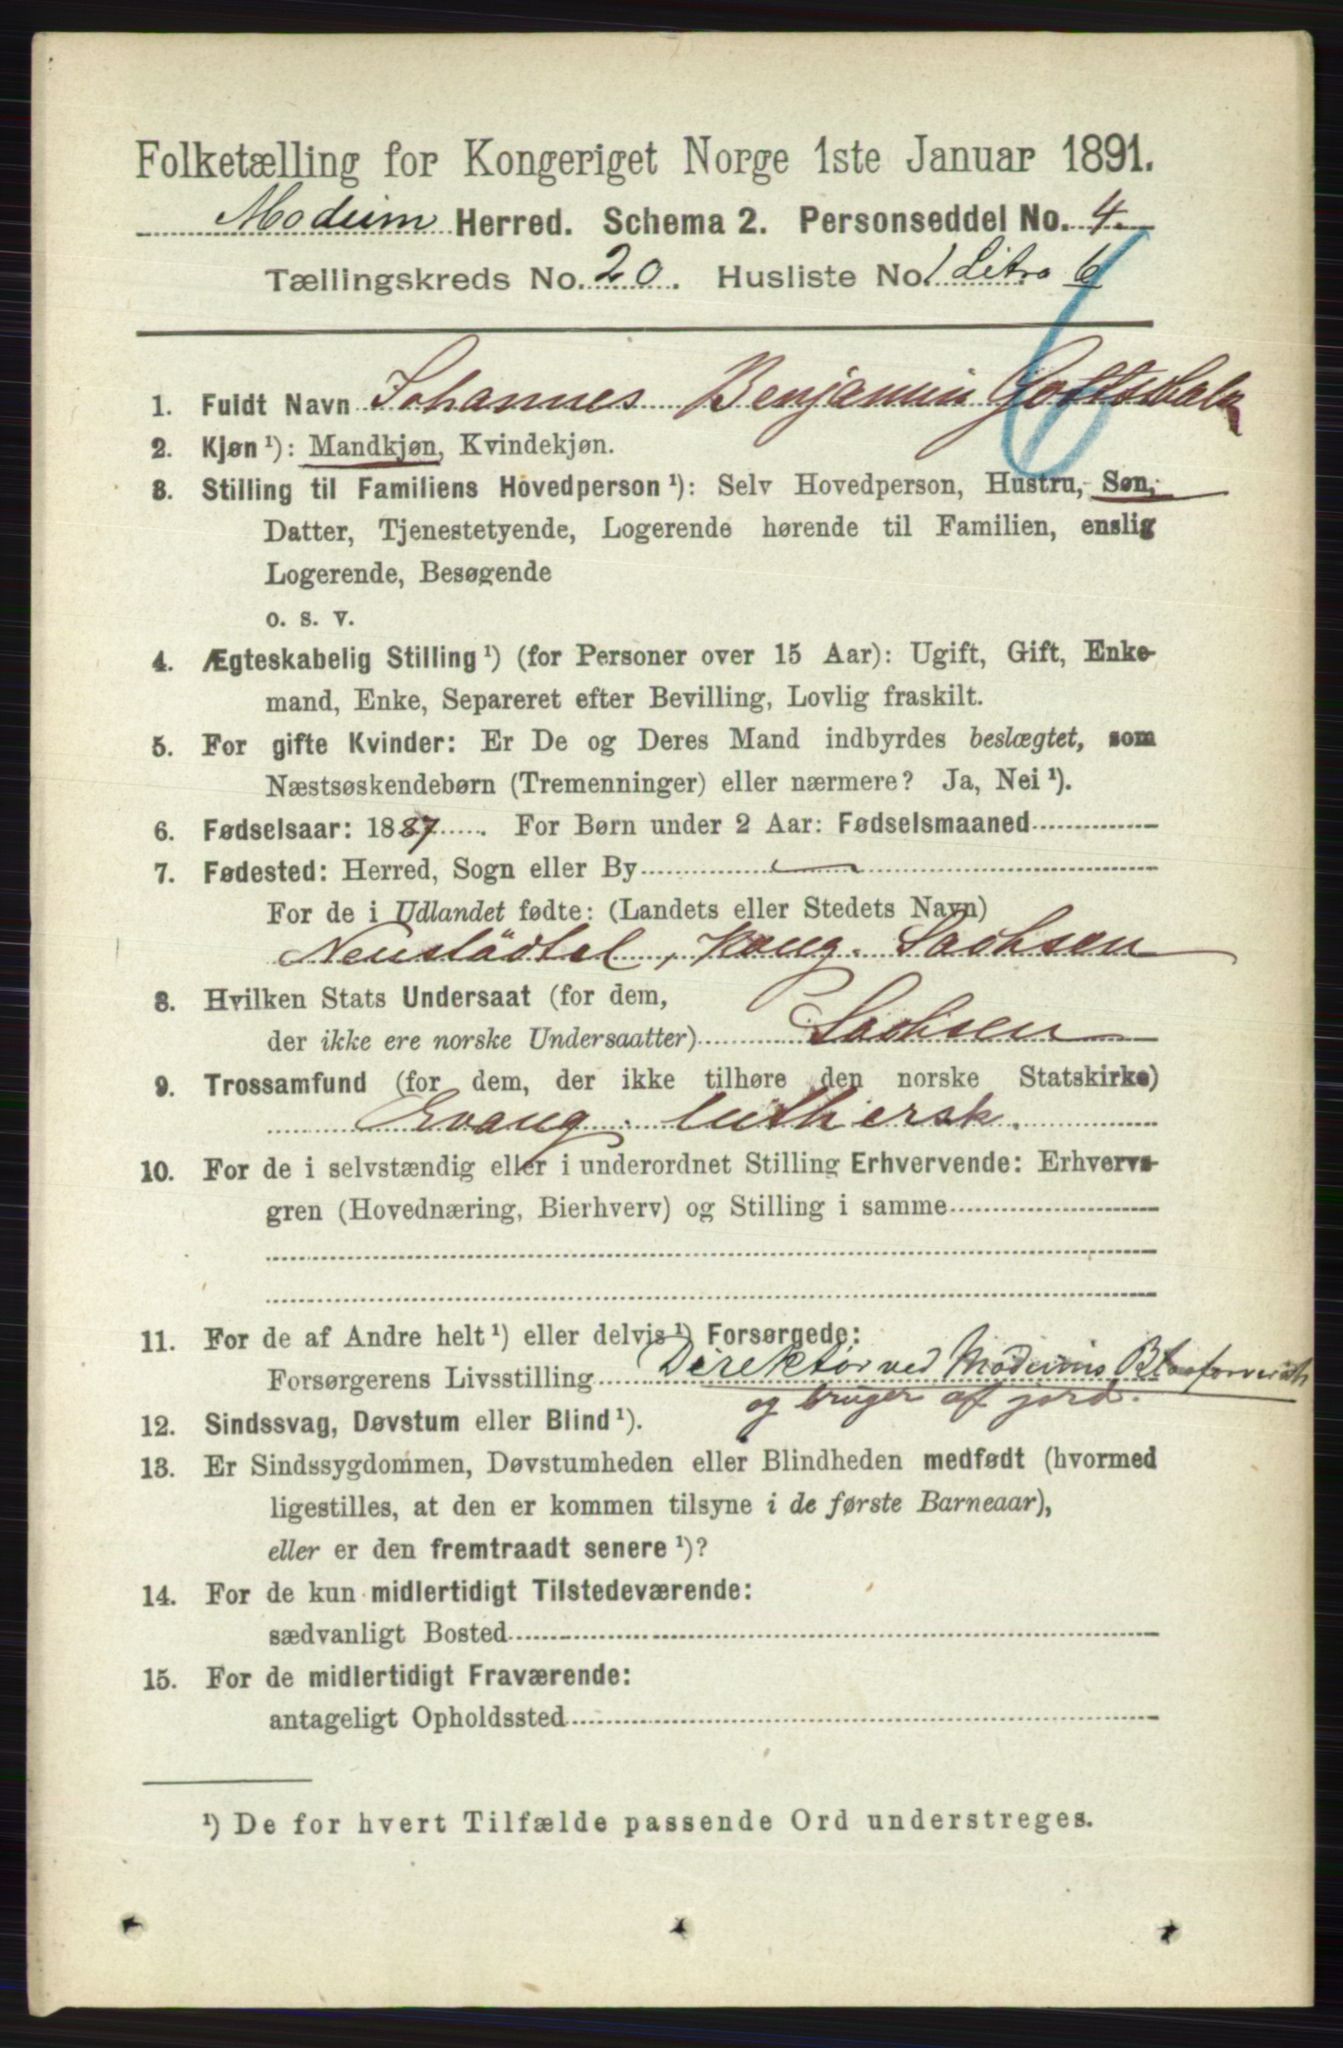 Folketælling for Kongeriget Norge 1ste Januar 1891.
Modum Herred. Schema 2. Personseddel No. 4.
Tællingskreds No. 20. Husliste No. 1 Litra b
1. Fuldt Navn Johannes Benjamin Gottswald
2. Kjøn ¹): Mandkjøn, Kvindekjøn.
3. Stilling til Familiens Hovedperson ¹): Selv Hovedperson, Hustru, Søn,
Datter, Tjenestetyende, Logerende hørende til Familien, enslig
Logerende, Besøgende
o. s. v.
4. Ægteskabelig Stilling ¹) (for Personer over 15 Aar): Ugift, Gift, Enke-
mand, Enke, Separeret efter Bevilling, Lovlig fraskilt.
5. For gifte Kvinder: Er De og Deres Mand indbyrdes beslægtet, som
Næstsøskendebørn (Tremenninger) eller nærmere? Ja, Nei ¹).
6. Fødselsaar: 1887. For Børn under 2 Aar: Fødselsmaaned
7. Fødested: Herred, Sogn eller By
For de i Udlandet fødte: (Landets eller Stedets Navn)
Neustädtel, Kong. Sachsen
8. Hvilken Stats Undersaat (for dem,
der ikke ere norske Undersaatter) Sachsen
9. Trossamfund (for dem, der ikke tilhøre den norske Statskirke)
Evang. luthersk.
10. For de i selvstændig eller i underordnet Stilling Erhvervende: Erhvervs-
gren (Hovednæring, Bierhverv) og Stilling i samme
11. For de af Andre helt ¹) eller delvis ¹) Forsørgede:
Forsørgerens Livsstilling Direktør ved Modums Blaafarveværk
og bruger af jord.
12. Sindssvag, Døvstum eller Blind ¹).
13. Er Sindssygdommen, Døvstumheden eller Blindheden medfødt (hvormed
ligestilles, at den er kommen tilsyne i de første Barneaar),
eller er den fremtraadt senere ¹)?
14. For de kun midlertidigt Tilstedeværende:
sædvanligt Bosted
15. For de midlertidigt Fraværende:
antageligt Opholdssted
¹) De for hvert Tilfælde passende Ord understreges.